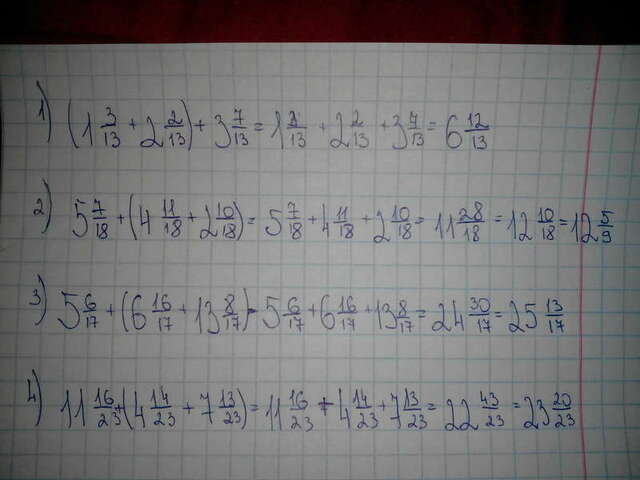 1) (1 3/13 + 2 2/13) + 3 7/13 = 1 3/13 + 2 2/13 + 3 7/13 = 6 12/13
2) 5 7/18 + (4 11/18 + 2 10/18) = 5 7/18 + 4 11/18 + 2 10/18 = 11 28/18 = 12 10/18 = 12 5/9
3) 5 6/17 + (6 16/17 + 13 8/17) = 5 6/17 + 6 16/17 + 13 8/17 = 24 30/17 = 25 13/17
4) 11 16/23 + (4 14/23 + 7 13/23) = 11 16/23 + 4 14/23 + 7 13/23 = 22 43/23 = 23 20/23